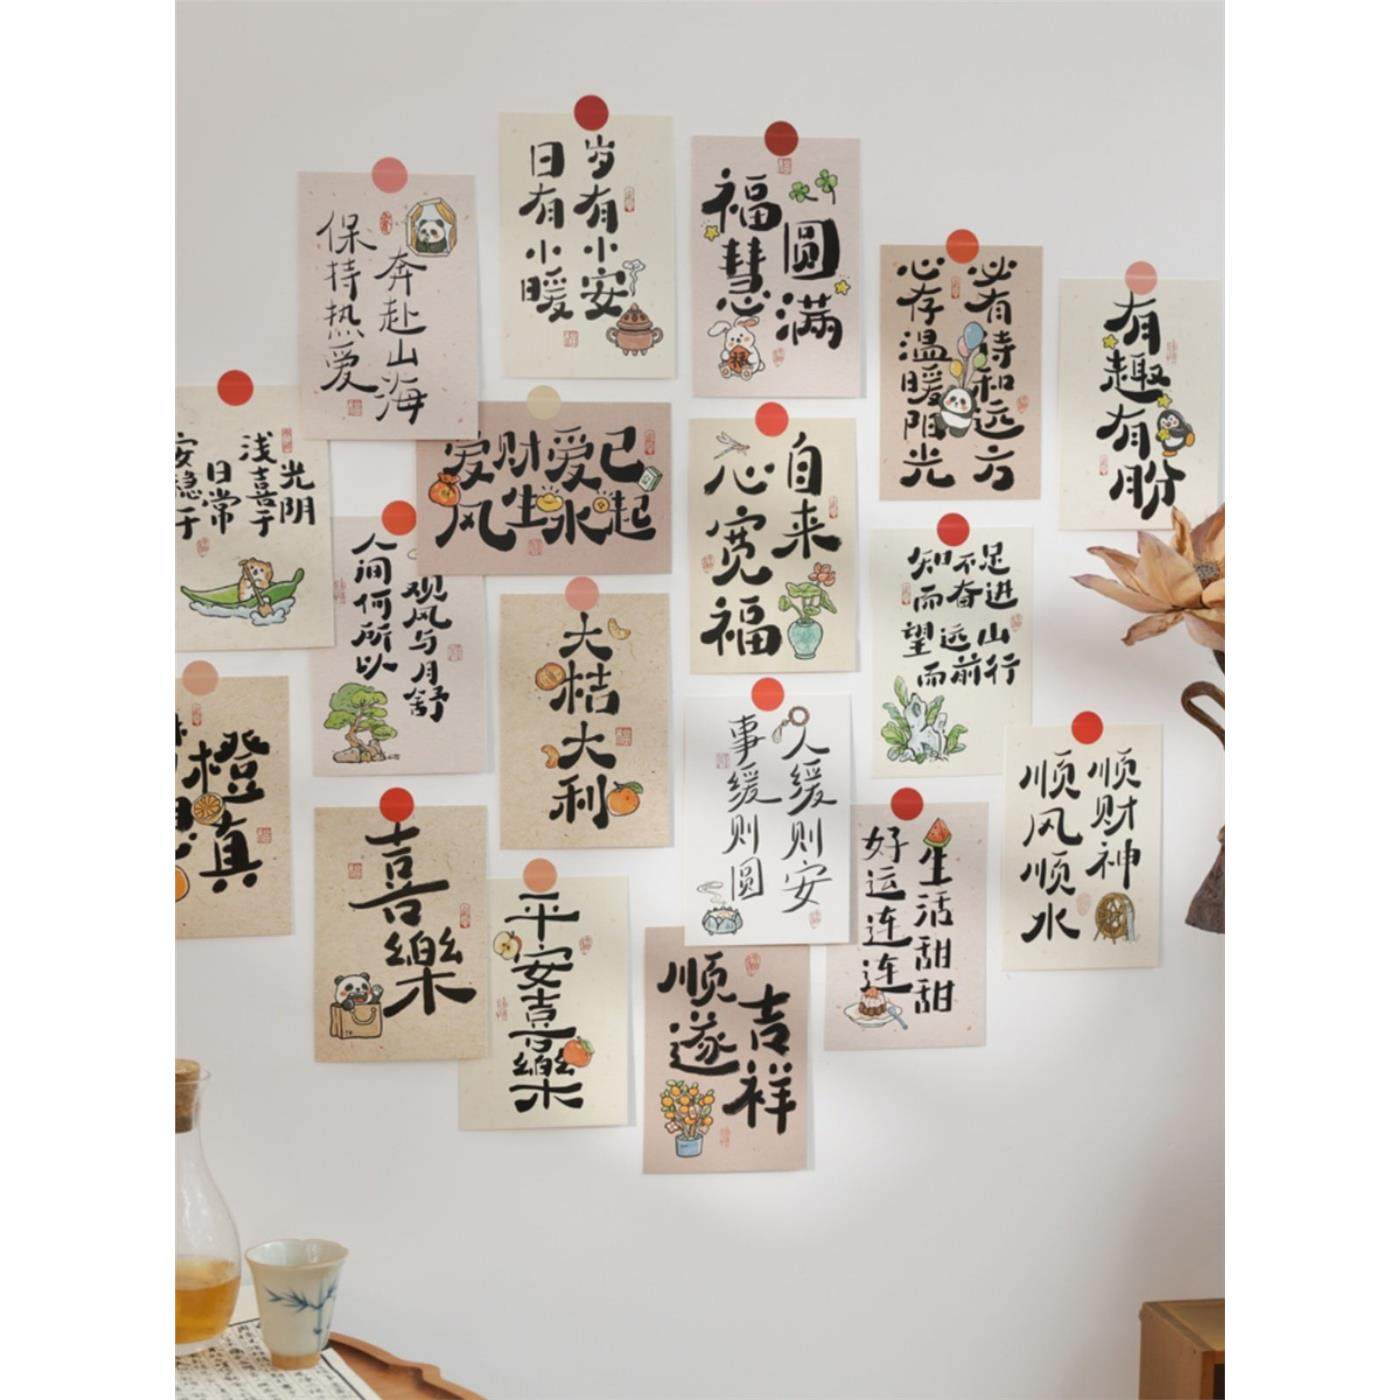 日有小暖
岁有小安
福慧
圆满
保持热爱
奔赴山海
心存温暖阳光
必有诗和远方
有趣有盼
浅喜于
光阴
安稳于
日常
爱财爱己
风生水起
心宽福
自来
知不足
而奋进
望远山
而前行
人间何所以
观风与月舒
大桔大利
橙
真
人缓则安
事缓则圆
顺财神
顺风顺水
喜樂
好运连连
生活甜甜
平安喜樂
顺遂
吉祥